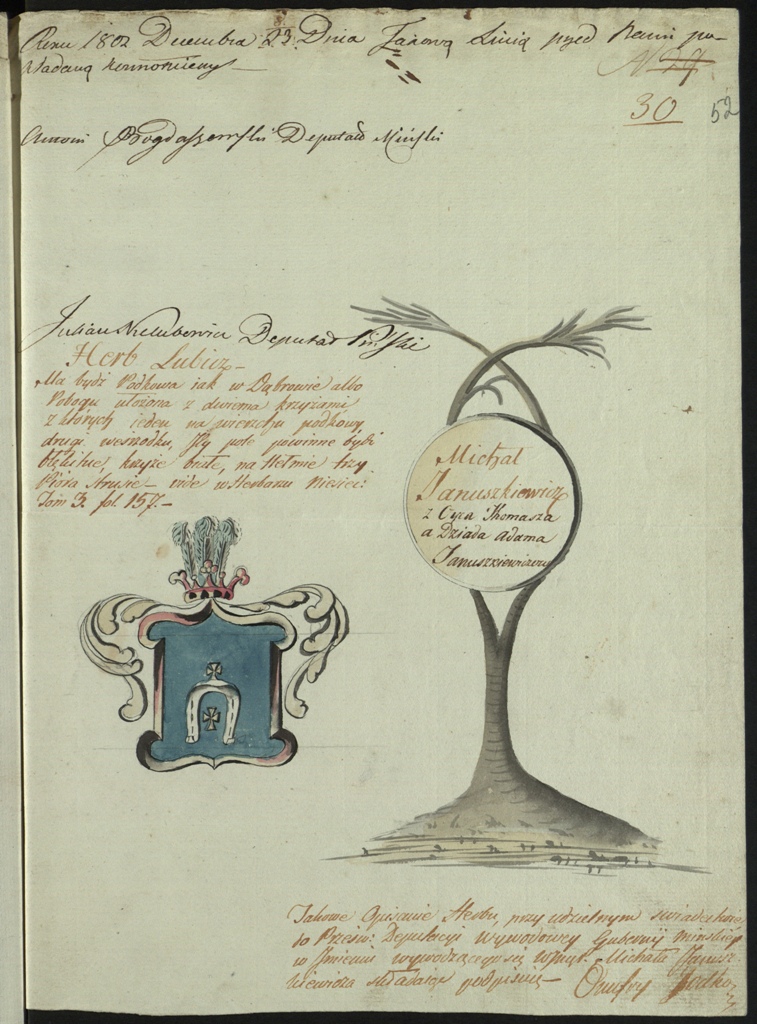 Roku 1802 Decembra 23 Dnia Takową Linią przed Nami po-
kładaną
30
52
Antoni Bogdaszewski Deputat Miński
Julian Deputat Piński
Herb Lubicz –
Ma bydź Podkowa iak w Dąbrowie albo
Pobogu ułożona z dwiema krzyżami
z których ieden na wierzchu podkowy
drugi weśrzodku, pole powinne być
błękitne, krzyże białe, na Hełmie trzy
Pióra Strusie – vide w Herbarzu Niesiec:
Tom 3. fol. 157. –
Michał
Januszkiewicz
z Oyca Thomasza
a Dziada Adama
Januszkiewiczow
Takowe Opisanie Herbu, przy udzielnym świadectwie
do Prześw: Deputacyi Wywodowey Gubernij Mińskiey
w Imieniu wywodzącego się Michała Janusz
kiewicza składaiąc podpisuię –